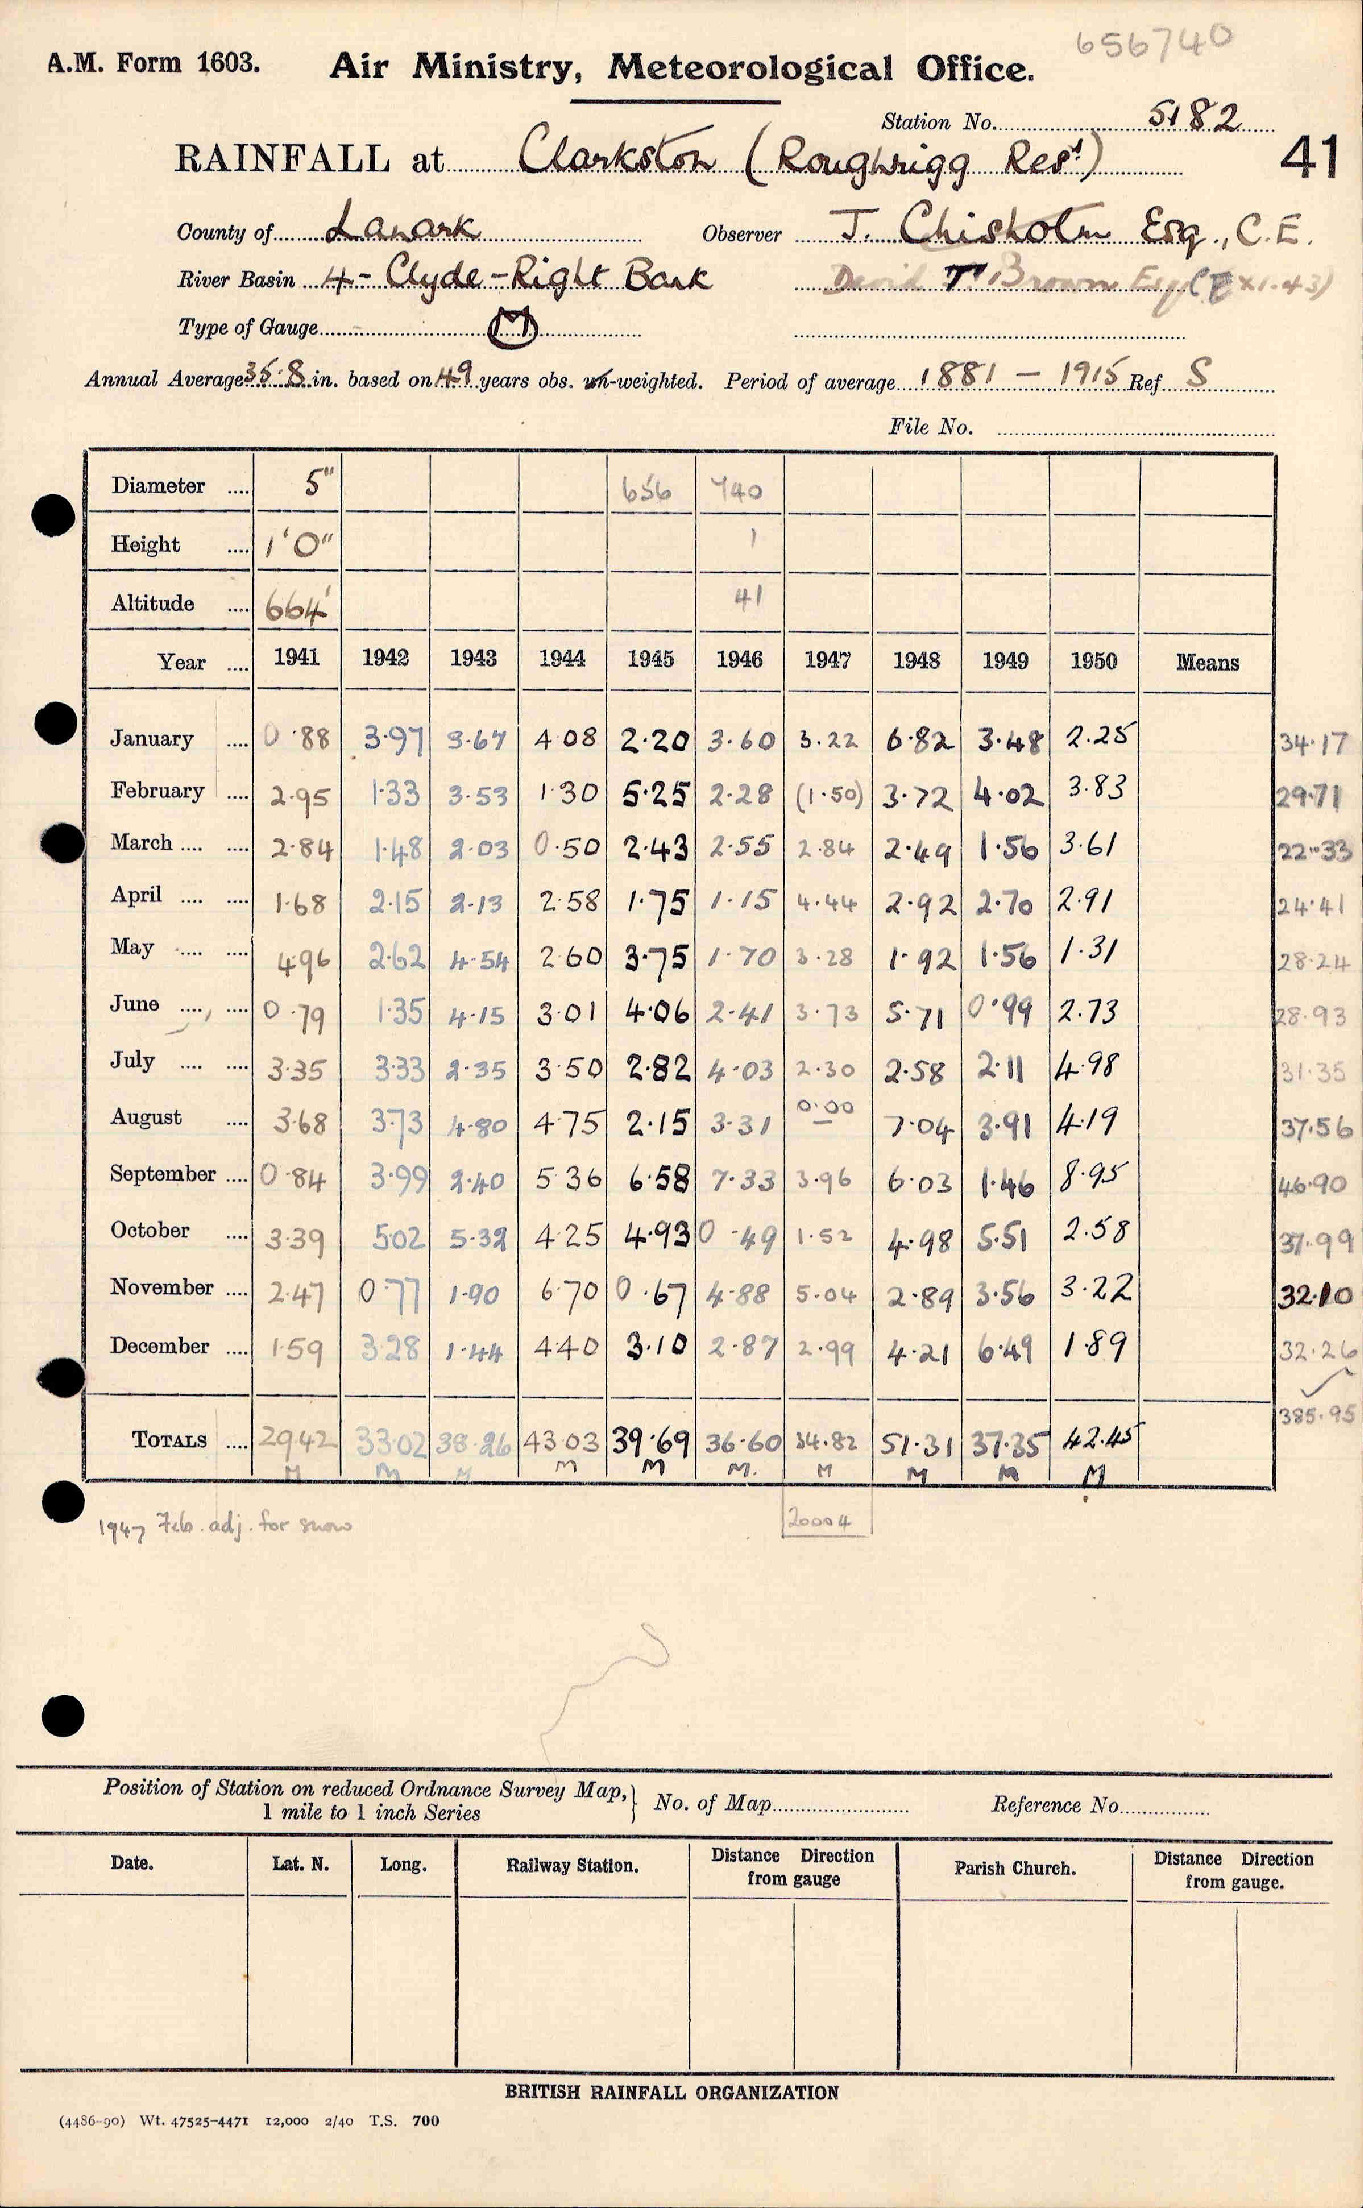 656740
A.M. Form 1603. Air Ministry, Meteorological Office.
Station No. 5182
RAINFALL at Clarkston (Roughrigg Resr) 41
County of Lanark Observer J. Chisholm Esq., C.E.
River Basin 4 - Clyde - Right Bank David T. Brown Esq
Type of Gauge M
Annual Average 35.8 in. based on 49 years obs. un-weighted. Period of average 1881 - 1915 Ref S
File No.
Diameter .... 5" 656 740
Height .... 1'0" 1
Altitude .... 664' 41
Year .... 1941 1942 1943 1944 1945 1946 1947 1948 1949 1950 Means
January .... 0.88 3.97 3.67 4.08 2.20 3.60 3.22 6.82 3.48 2.25 34.17
February .... 2.95 1.33 3.53 1.30 5.25 2.28 (1.50) 3.72 4.02 3.83 29.71
March .... .... 2.84 1.48 2.03 0.50 2.43 2.55 2.84 2.49 1.56 3.61 22.33
April .... .... 1.68 2.15 2.13 2.58 1.75 1.15 4.44 2.92 2.70 2.91 24.41
May .... .... 4.96 2.62 4.54 2.60 3.75 1.70 3.28 1.92 1.56 1.31 28.24
June .... .... 0.79 1.35 4.15 3.01 4.06 2.41 3.73 5.71 0.99 2.73 28.93
July .... .... 3.35 3.33 2.35 3.50 2.82 4.03 2.30 2.58 2.11 4.98 31.35
August .... 3.68 3.73 4.80 4.75 2.15 3.31 0.00 7.04 3.91 4.19 37.56
September .... 0.84 3.99 2.40 5.36 6.58 7.33 3.96 6.03 1.46 8.95 46.90
October .... 3.39 5.02 5.32 4.25 4.93 0.49 1.52 4.98 5.51 2.58 37.99
November .... 2.47 0.77 1.90 6.70 0.67 4.88 5.04 2.89 3.56 3.22 32.10
December .... 1.59 3.28 1.44 4.40 3.10 2.87 2.99 4.21 6.49 1.89 32.26
385.95
TOTALS .... 29.42 33.02 38.26 43.03 39.69 36.60 34.82 51.31 37.35 42.45
M M M M M M. M M M M
1947 Feb. adj. for snow 20004
Position of Station on reduced Ordnance Survey Map, } No. of Map Reference No.
1 mile to 1 inch Series
Date. Lat. N. Long. Railway Station. Distance Direction from gauge Parish Church. Distance Direction from gauge.
BRITISH RAINFALL ORGANIZATION
(4486-90) Wt. 47525-4471 12,000 2/40 T.S. 700